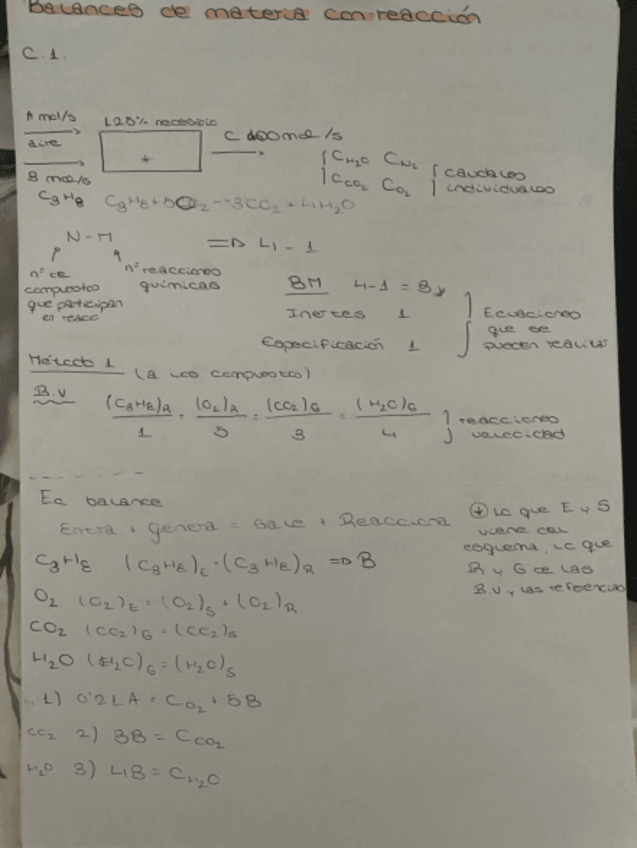 Balances de materia con reacción
C.1.
A mol/s 120% necesario
aire C 400 mol/s
B mol/s
C3H8
CH2O CN2
CCO2 CO2
caudales
individuales
C3H8 + 5O2 → 3CO2 + 4H2O
N - M => 4 - 1
nº de
compuestos
que participan
en reacc
nº reacciones
químicas
BM 4-1 = 3
Inertes 1
Especificación 1
Ecuaciones
que se
pueden realizar
Método 1 (a los compuestos)
B.V (C3H8)R = (O2)R = (CO2)G = (H2O)G
1 5 3 4
reacciones
velocidad
Ec balance
Entra + genera = sale + Reacciona
Lo que E y S
viene del
esquema, lo que
R y G de las
B.V y las referencias
C3H8 (C3H8)E = (C3H8)R => B
O2 (O2)E = (O2)S + (O2)R
CO2 (CO2)G = (CO2)S
H2O (H2O)G = (H2O)S
1) 0'21A = CO2 + 5B
CO2 2) 3B = CCO2
H2O 3) 4B = CH2O